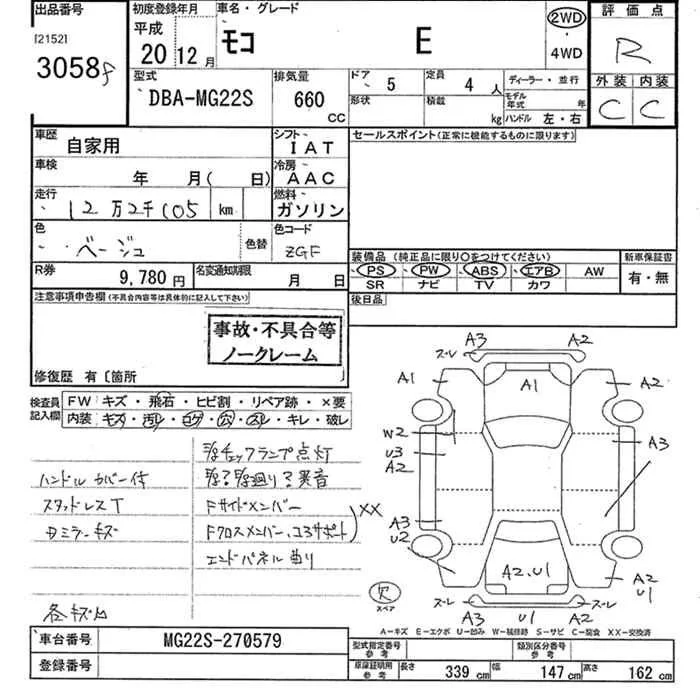 出品番号 初度登録年月 車名・グレード 2WD 評価点
[2152] 平成
3058 20年 12月 モコ E 4WD R
型式 排気量 ドア 5 定員 4人 ディーラー・並行 外装 内装
DBA-MG22S 660 CC 形状 積載 kg モデル年式 年 C C
ハンドル 左・右
車歴 自家用 シフト IAT セールスポイント(正常に機能するものに限ります)
車検 年 月( 日) 冷房 AAC
走行 12万2千105 km 燃料 ガソリン
色 ベージュ 色替 色コード ZGF
装備品 (純正品に限り○をつけてください) 新車保証書
R券 9,780円 名変通知期限 月 日 PS PW ABS エアB AW 有・無
SR ナビ TV カワ
注意事項申告欄(不具合内容等は具体的に記入して下さい) 後日品
事故・不具合等
ノークレーム
修復歴 有〔箇所
検査員記入欄 FW キズ・飛石・ヒビ割・リペア跡・×要
内装 キズ・汚レ・コゲ・穴・スレ・キレ・破レ
チェックランプ点灯
ハンドルカバー付 異音
スタッドレスT Fサイドメンバー XX
Dミラーキズ Fクロスメンバー、コアサポート
エンドパネル曲り
各キズ凹
A3 A2
ズレ ズレ
A1 A1 A2
W2
U3 A3
A2
A3
U2
A2、U1 A2
U1
欠 ズレ ズレ
スペア A3 U1 A2
A-キズ E-エクボ U-凹み W-補修跡 S-サビ C-腐食 XX-交換済
車台番号 MG22S-270579 型式指定番号 参考 類別区分番号 参考
登録番号 車庫証明用 参考 長さ 339 cm 幅 147 cm 高さ 162 cm